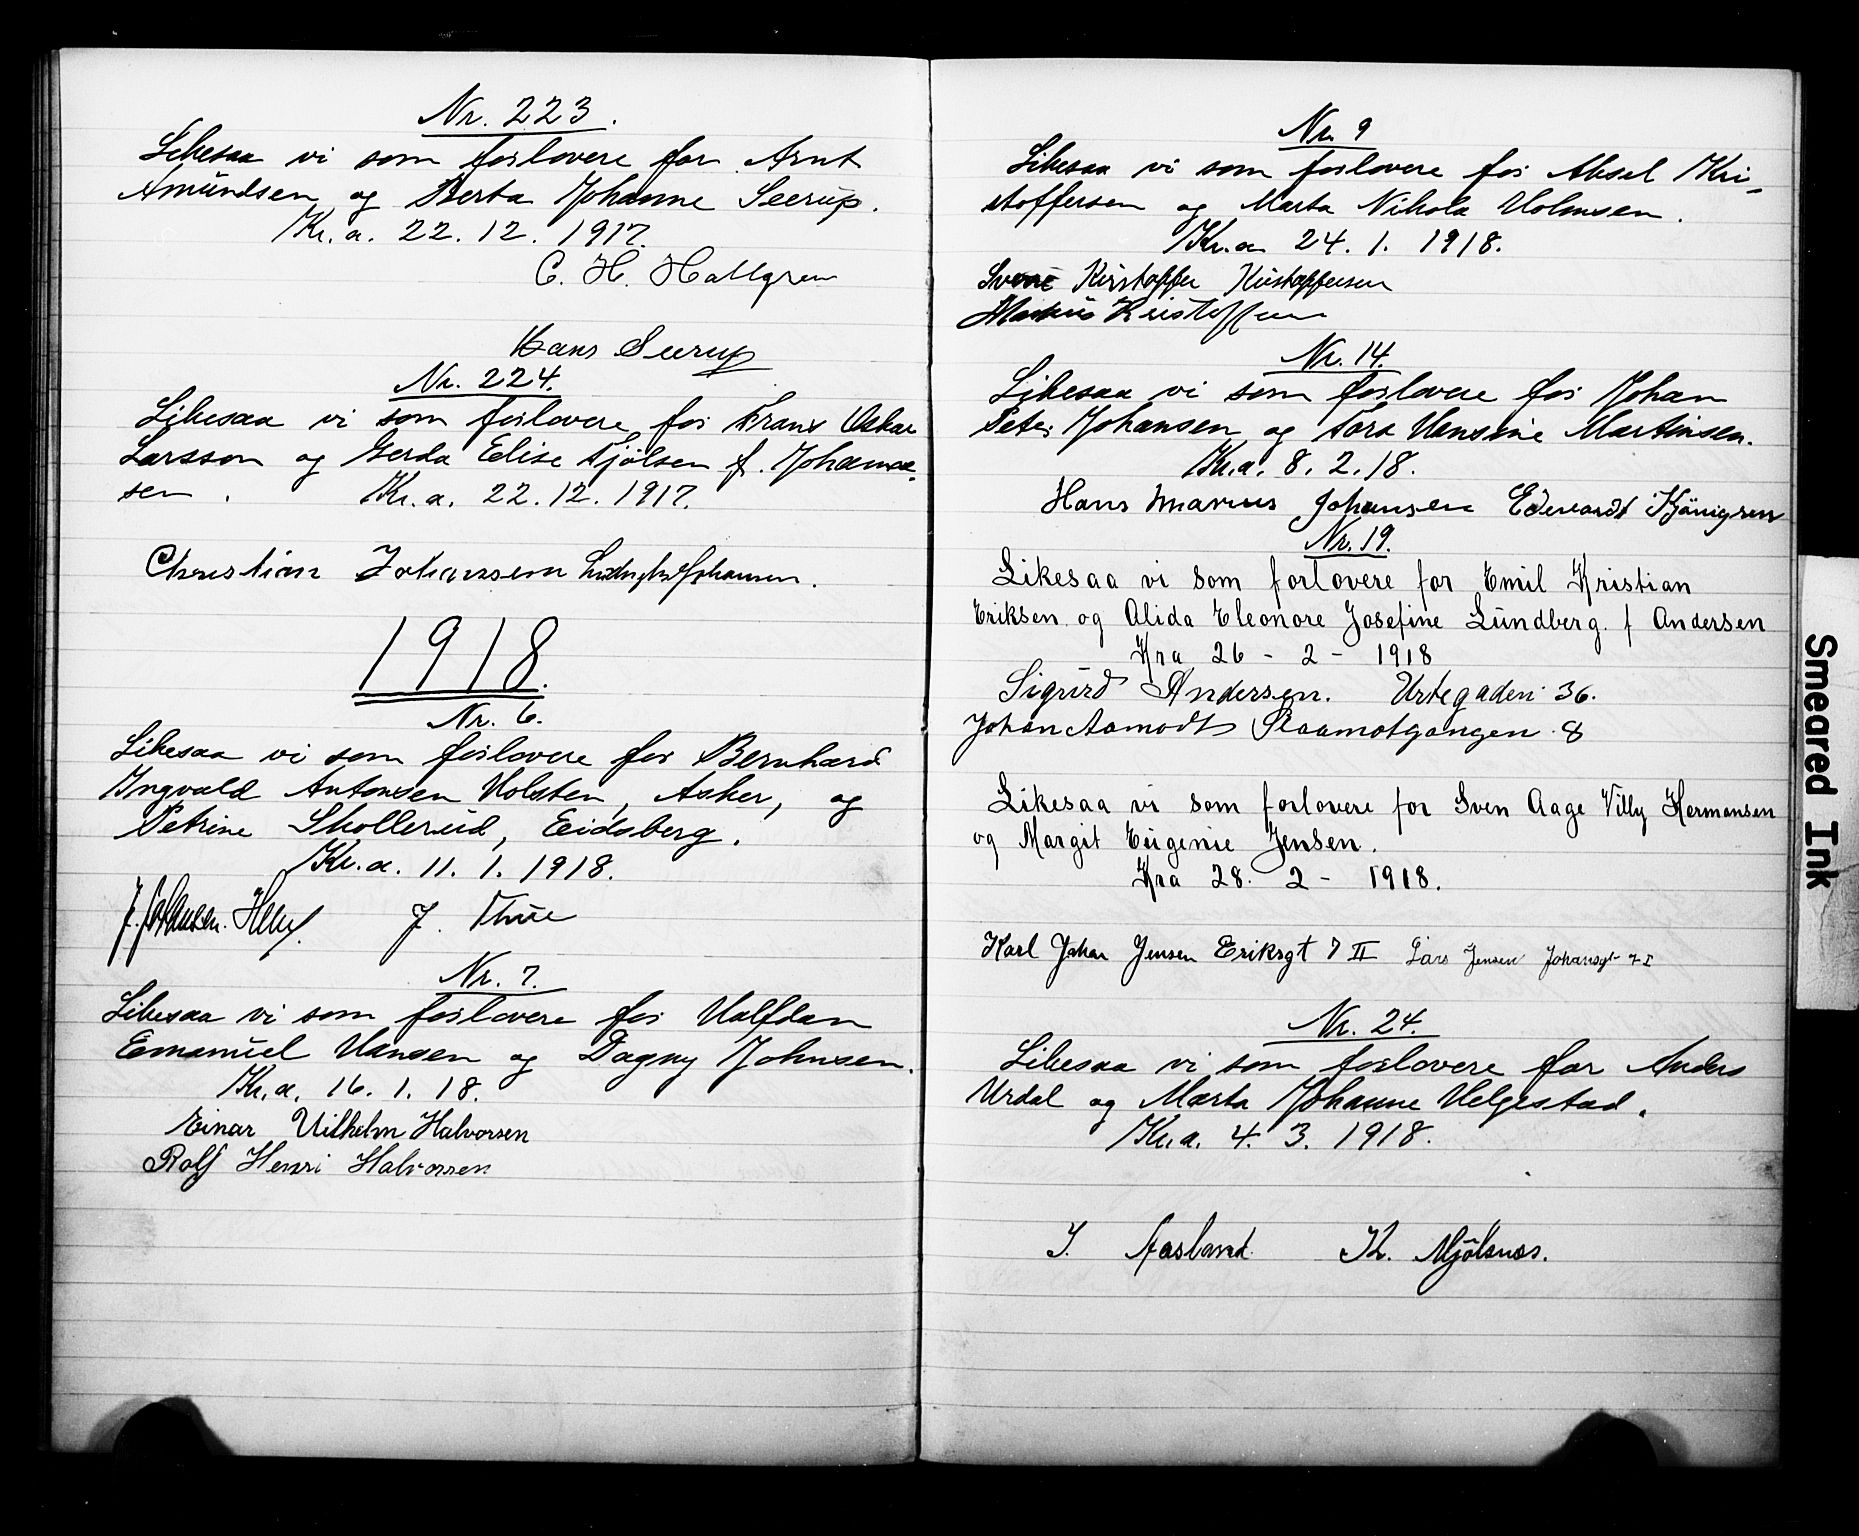 Nr. 223.
Likesaa vi som forlovere for Arnt
Amundsen og Berta Johanne Seerup.
Kr.a. 22.12. 1917.
C. H. Hallgren
Hans Seerup
Nr. 224.
Likesaa vi som forlovere for Frans Oskar
Larsson og Gerda Elise Fjølsen f. Johanne-
sen. Kr.a. 22.12. 1917.
Christian Johannsen Johansen.
1918.
Nr. 6.
Likesaa vi som forlovere for Bernhard
Ingvald Antonsen Holsten, Asker, og
Petrine Skollerud, Eidsberg.
Kr.a. 11. 1. 1918.
J. Johansen J. Thue
Nr. 7.
Likesaa vi som forlovere for Halfdan
Emanuel Hansen og Dagny Johnsen.
Kr.a. 16. 1. 18.
Einar Vilhelm Halvorsen
Rolf Henri Halvorsen
Nr. 9
Likesaa vi som forlovere for Aksel Kri-
stoffersen og Marta Nikola Holmsen.
Kr.a 24. 1. 1918.
Kristoffer Kristoffersen
Markus Kristoffersen
Nr. 14.
Likesaa vi som forlovere for Johan
Peter Johansen og Tora Hansine Martinsen.
Kr.a. 8. 2. 18.
Hans Marius Johansen Edevardt
Nr. 19.
Likesaa vi som forlovere for Emil Kristian
Eriksen og Alida Eleonore Josefine Lundberg f Andersen
Kra 26 - 2 - 1918
Sigurd Andersen. Urtegaden 36.
Johan Aamodt Plaamotgangen 8
Likesaa vi som forlovere for Sven Aage Villy Hermansen
og Margit Eugenie Jensen.
Kra 28. 2 - 1918.
Karl Johan Jensen Eriksgt 7 II Lars Jensen Johansgt 7 I
Nr. 24.
Likesaa vi som forlovere for Anders
Urdal og Marta Johanne Helgestad.
Kr.a. 4. 3. 1918.
I. Aasland K. Mjölsnes.
Smeared Ink